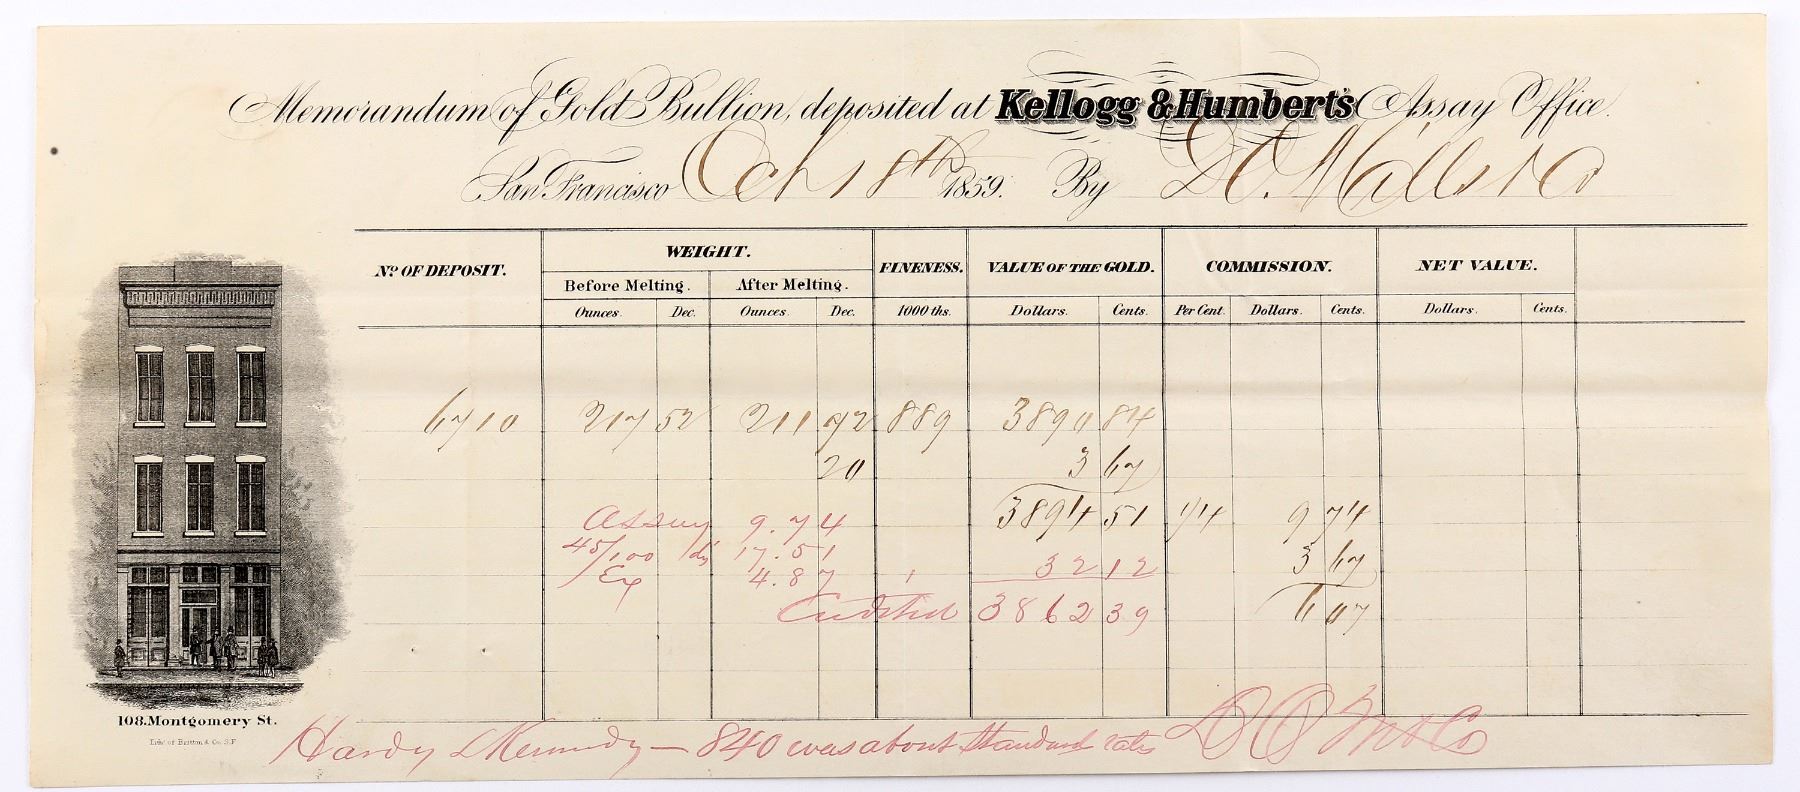 Memorandum of Gold Bullion, deposited at Kellogg & Humbert's Assay Office.
San Francisco Oct 18th 1859. By D.O. Mills & Co
No. OF DEPOSIT. WEIGHT. FINENESS. VALUE OF THE GOLD. COMMISSION. NET VALUE.
Before Melting. After Melting.
Ounces. Dec. Ounces. Dec. 1000 ths. Dollars. Cents. Per Cent. Dollars. Cents. Dollars. Cents.
6710 217 52 211 72 889 3890 84
20 3 67
Assay 9.74 3894 51 1/4 9 74
45/100 dis 17.51 3 67
Ex 4.87 32 12
3862 39
108. Montgomery St.
Lith. of Britton & Co. S.F.
Hardy & Kennedy — 840 was about standard rates D O M & Co